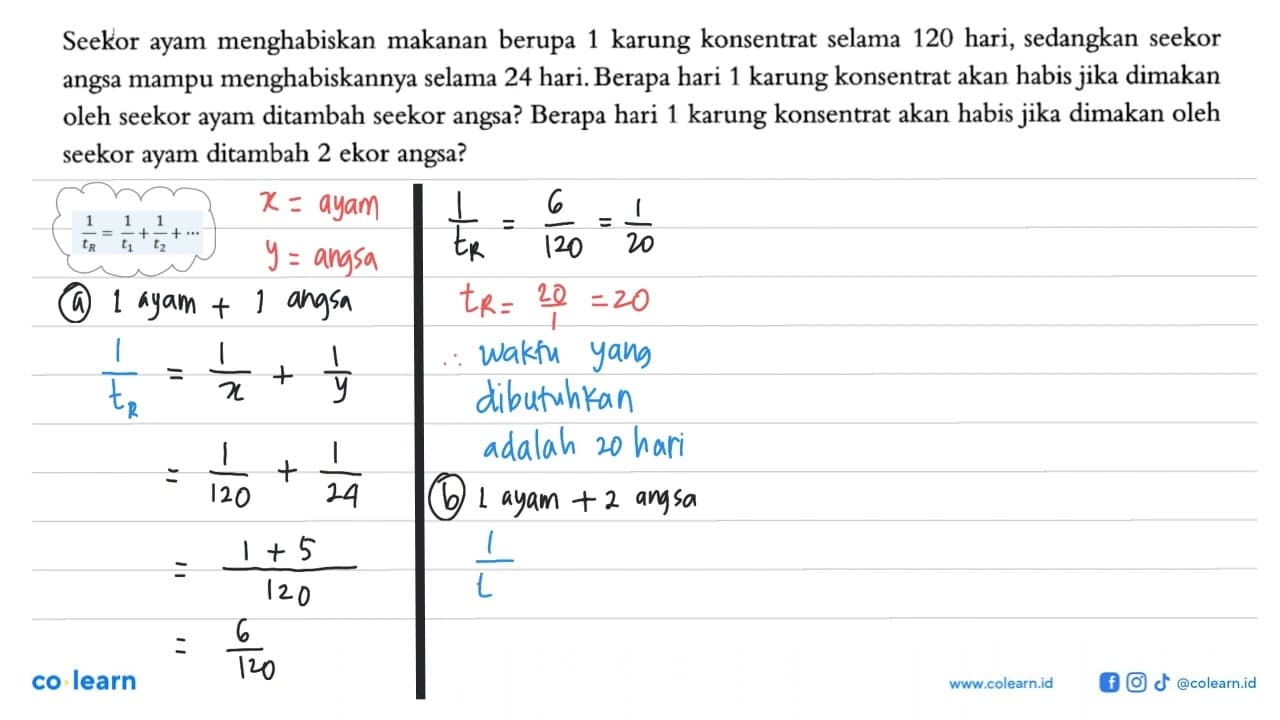 Seekor ayam menghabiskan makanan berupa 1 karung konsentrat selama 120 hari, sedangkan seekor
angsa mampu menghabiskannya selama 24 hari. Berapa hari 1 karung konsentrat akan habis jika dimakan
oleh seekor ayam ditambah seekor angsa? Berapa hari 1 karung konsentrat akan habis jika dimakan oleh
seekor ayam ditambah 2 ekor angsa?
1/t_R = 1/t_1 + 1/t_2 + ...
x = ayam
y = angsa
(a) 1 ayam + 1 angsa
1/t_R = 1/x + 1/y
= 1/120 + 1/24
= (1 + 5)/120
= 6/120
1/t_R = 6/120 = 1/20
t_R = 20/1 = 20
∴ waktu yang
dibutuhkan
adalah 20 hari
(b) 1 ayam + 2 angsa
1/t
co learn
www.colearn.id
@colearn.id